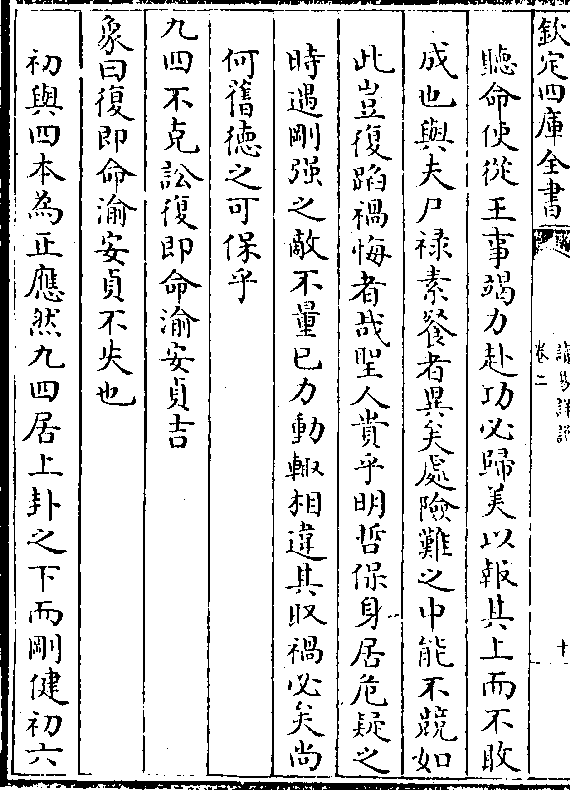 欽定四庫全書
讀易詳說
卷二
十
聽命使從王事竭力赴功必歸美以報其上而不敢
成也與夫尸祿素餐者異矣處險難之中能不競如
此豈復蹈禍悔者哉聖人貴乎明哲保身居危疑之
時遇剛强之敵不量已力動輒相違其取禍必矣尚
何舊德之可保乎
九四不克訟復即命渝安貞吉
象曰復即命渝安貞不失也
初與四本為正應然九四居上卦之下而剛健初六